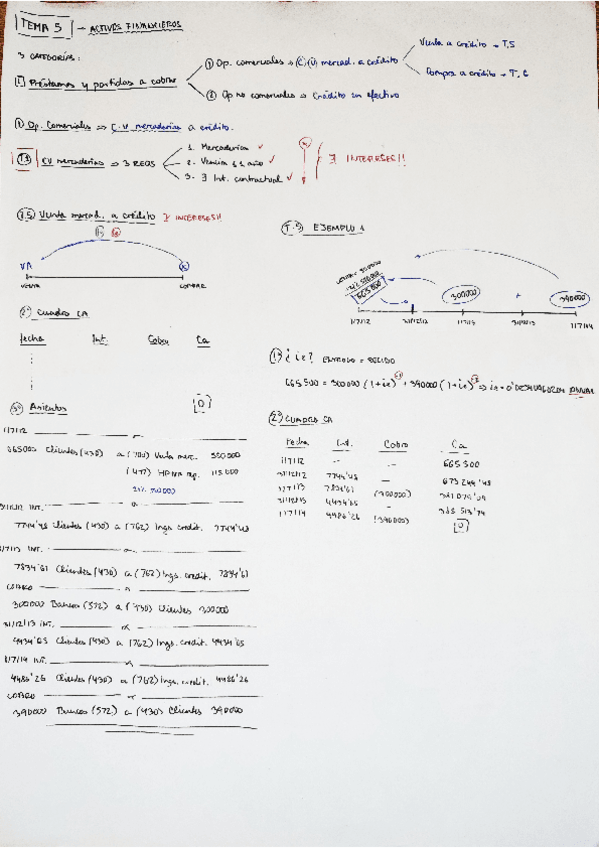 TEMA 5 - ACTIVOS FINANCIEROS
3 CATEGORÍAS:
1 Préstamos y partidas a cobrar
① Op. comerciales → C.V mercad. a crédito
Venta a crédito → T.5
Compra a crédito → T.
② Op no comerciales → Crédito en efectivo
① Op. Comerciales ⇒ C.V mercaderías a crédito.
CV mercaderías ⇒ 3 REQS
1. Mercaderías ✓
2. Vencia ≤ 1 año ✓
3. ∃ Int. contractual ✓
∄ INTERESES!!
Venta mercad. a crédito ∄ INTERESES!!
VA
VENTA
COBRAR
2º Cuadro CA
fecha Int. Cobro Ca
[0]
3º Asientos
1/7/12
665500 Clientes (430) a (700) Venta merc. 550000
(477) HP IVA rep. 115.500
21% 550000
31/12/12 INT.
7744'48 Clientes (430) a (762) Ings. credit. 7744'48
1/7/13 INT.
7834'61 Clientes (430) a (762) Ings. credit. 7834'61
COBRO
300000 Bancos (572) a (430) Clientes 300000
31/12/13 INT.
4434'65 Clientes (430) a (762) Ings. credit. 4434'65
1/7/14 INT.
4486'26 Clientes (430) a (762) Ings. credit. 4486'26
COBRO
390000 Bancos (572) a (430) Clientes 390000
EJEMPLO 1
665 500
300000
390000
1/7/12 31/12/12 1/7/13 31/12/13 1/7/14
1º ¿ie?
665 500 = 300000 (1+ie) + 390000 (1+ie) ⇒ ie = ANUAL
2º CUADRO CA
Fecha Int. Cobro Ca
1/7/12 -- -- 665 500
31/12/12 7744'48 - 673 244'48
1/7/13 7834'61 (300000) 381 079'09
31/12/13 4434'65 - 385 513'74
1/7/14 4486'26 (390000) [0]